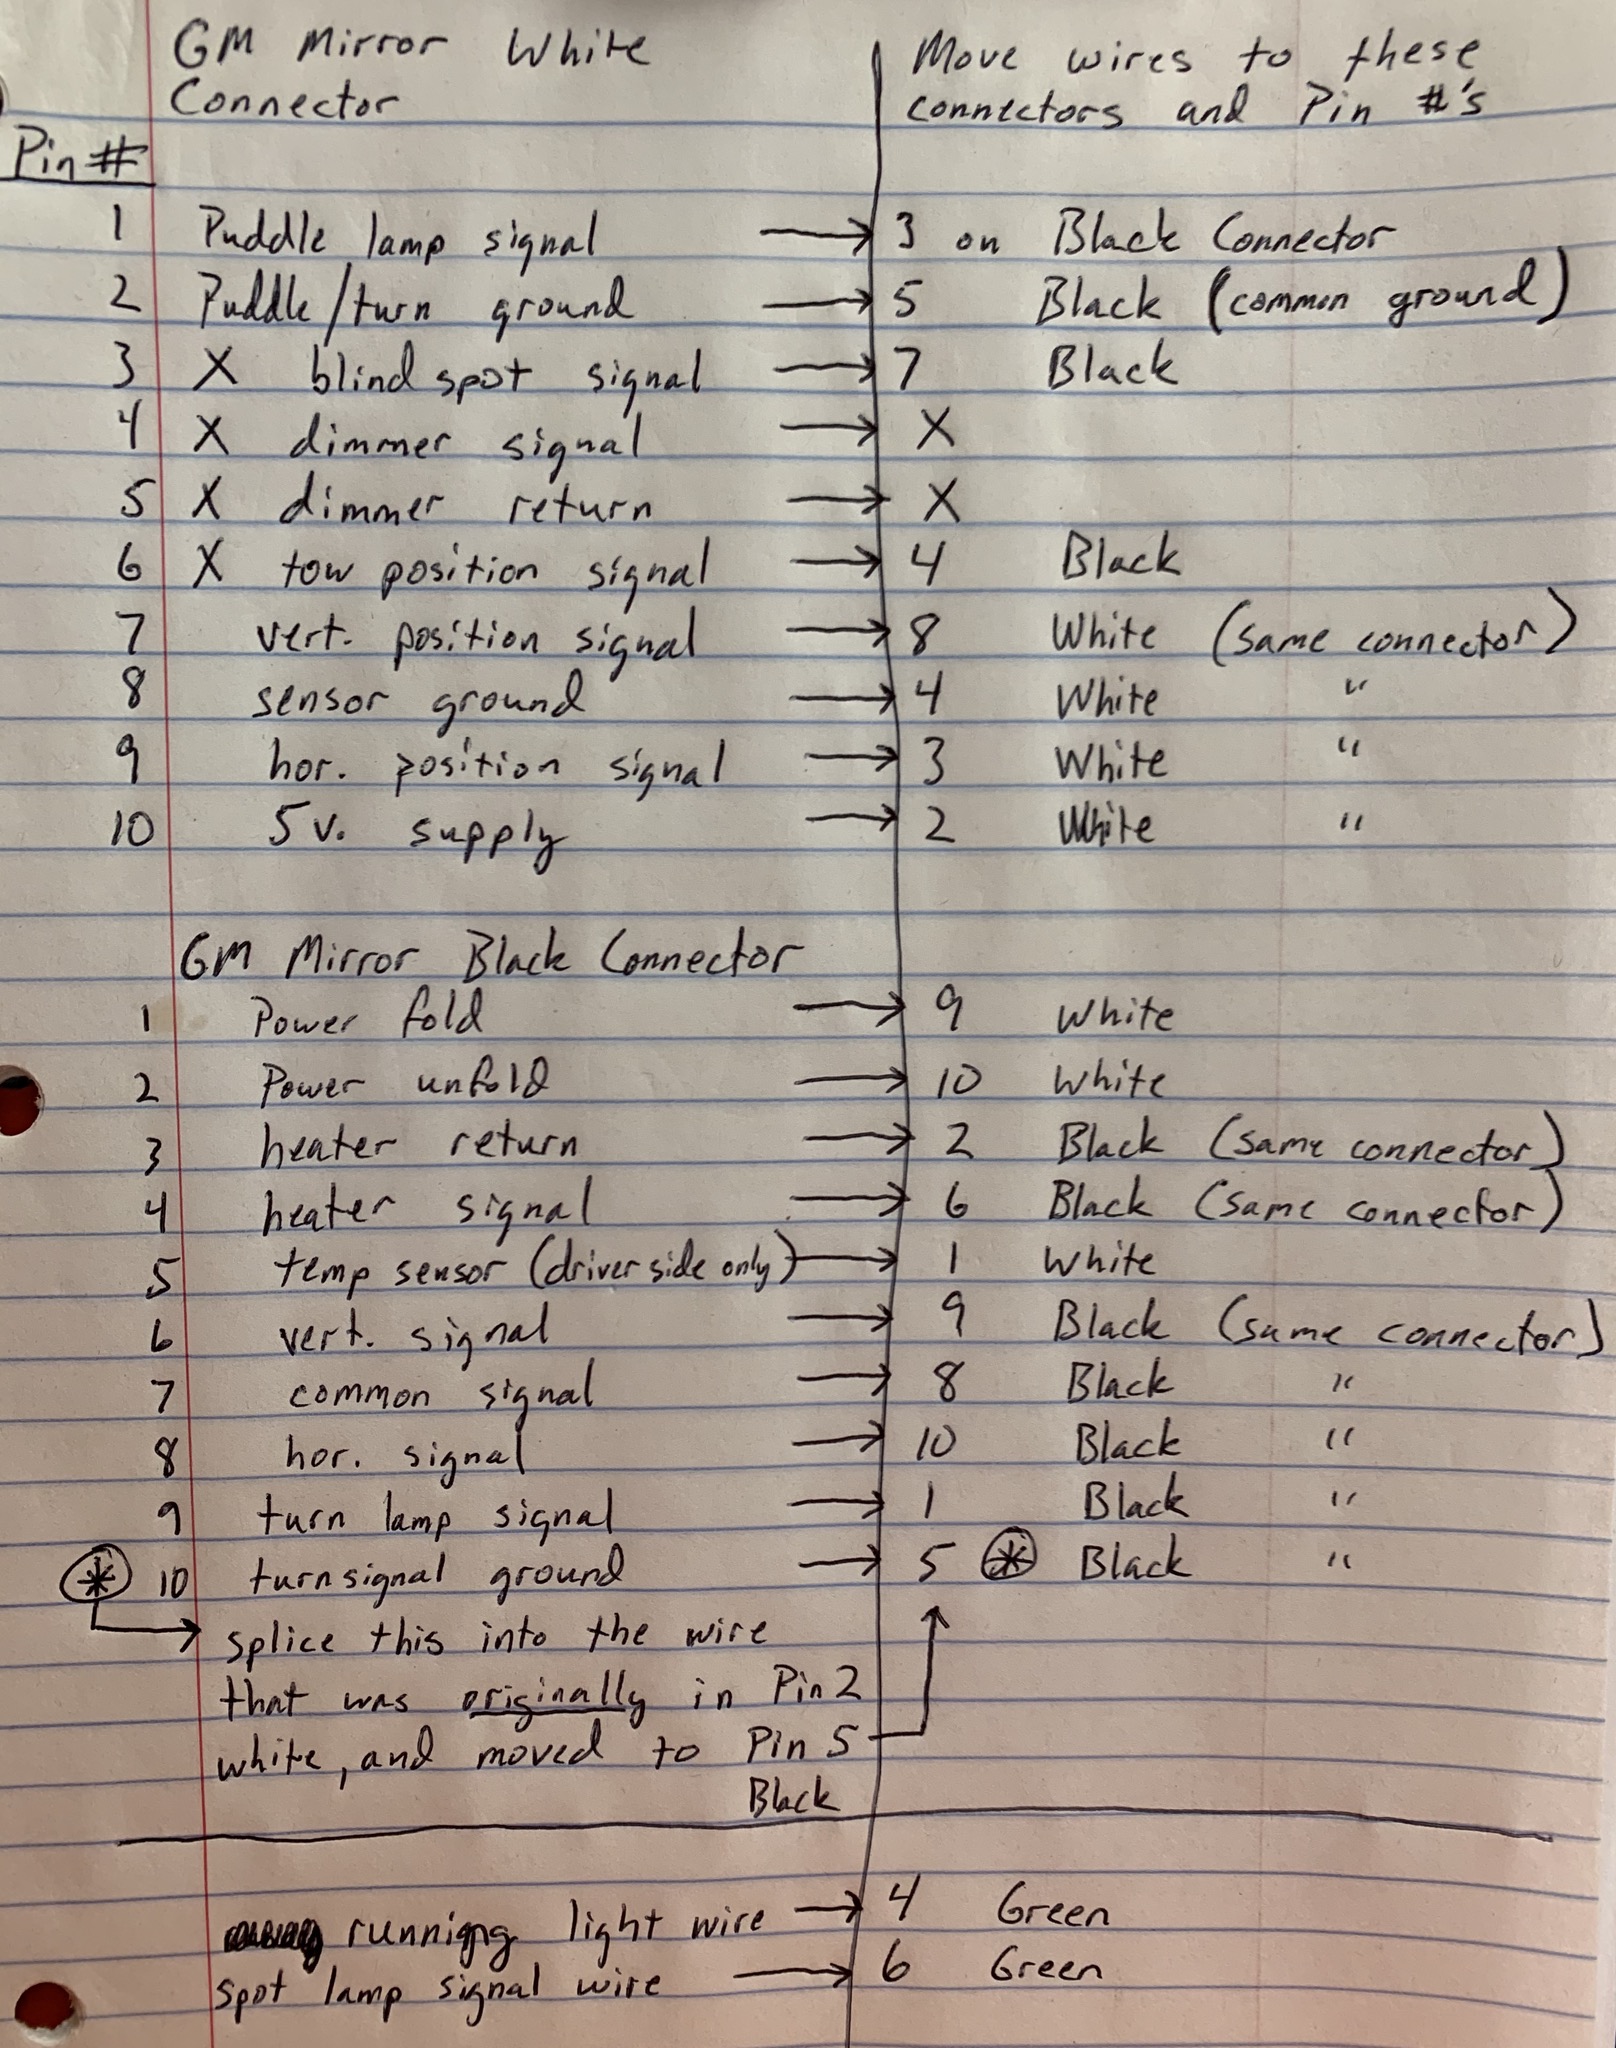 GM Mirror White Connector | Move wires to these connectors and Pin #'s
Pin #
1 Puddle lamp signal → 3 on Black Connector
2 Puddle/turn ground → 5 Black (common ground)
3 X blind spot signal → 7 Black
4 X dimmer signal → X
5 X dimmer return → X
6 X tow position signal → 4 Black
7 vert. position signal → 8 White (same connector)
8 sensor ground → 4 White "
9 hor. position signal → 3 White "
10 5v. supply → 2 White "
GM Mirror Black Connector
1 Power fold → 9 White
2 Power unfold → 10 White
3 heater return → 2 Black (same connector)
4 heater signal → 6 Black (same connector)
5 temp sensor (driver side only) → 1 White
6 vert. signal → 9 Black (same connector)
7 common signal → 8 Black "
8 hor. signal → 10 Black "
9 turn lamp signal → 1 Black "
* 10 turn signal ground → 5 * Black "
→ splice this into the wire
that was originally in Pin 2
white, and moved to Pin 5
Black
runnigng light wire → 4 Green
spot lamp signal wire → 6 Green